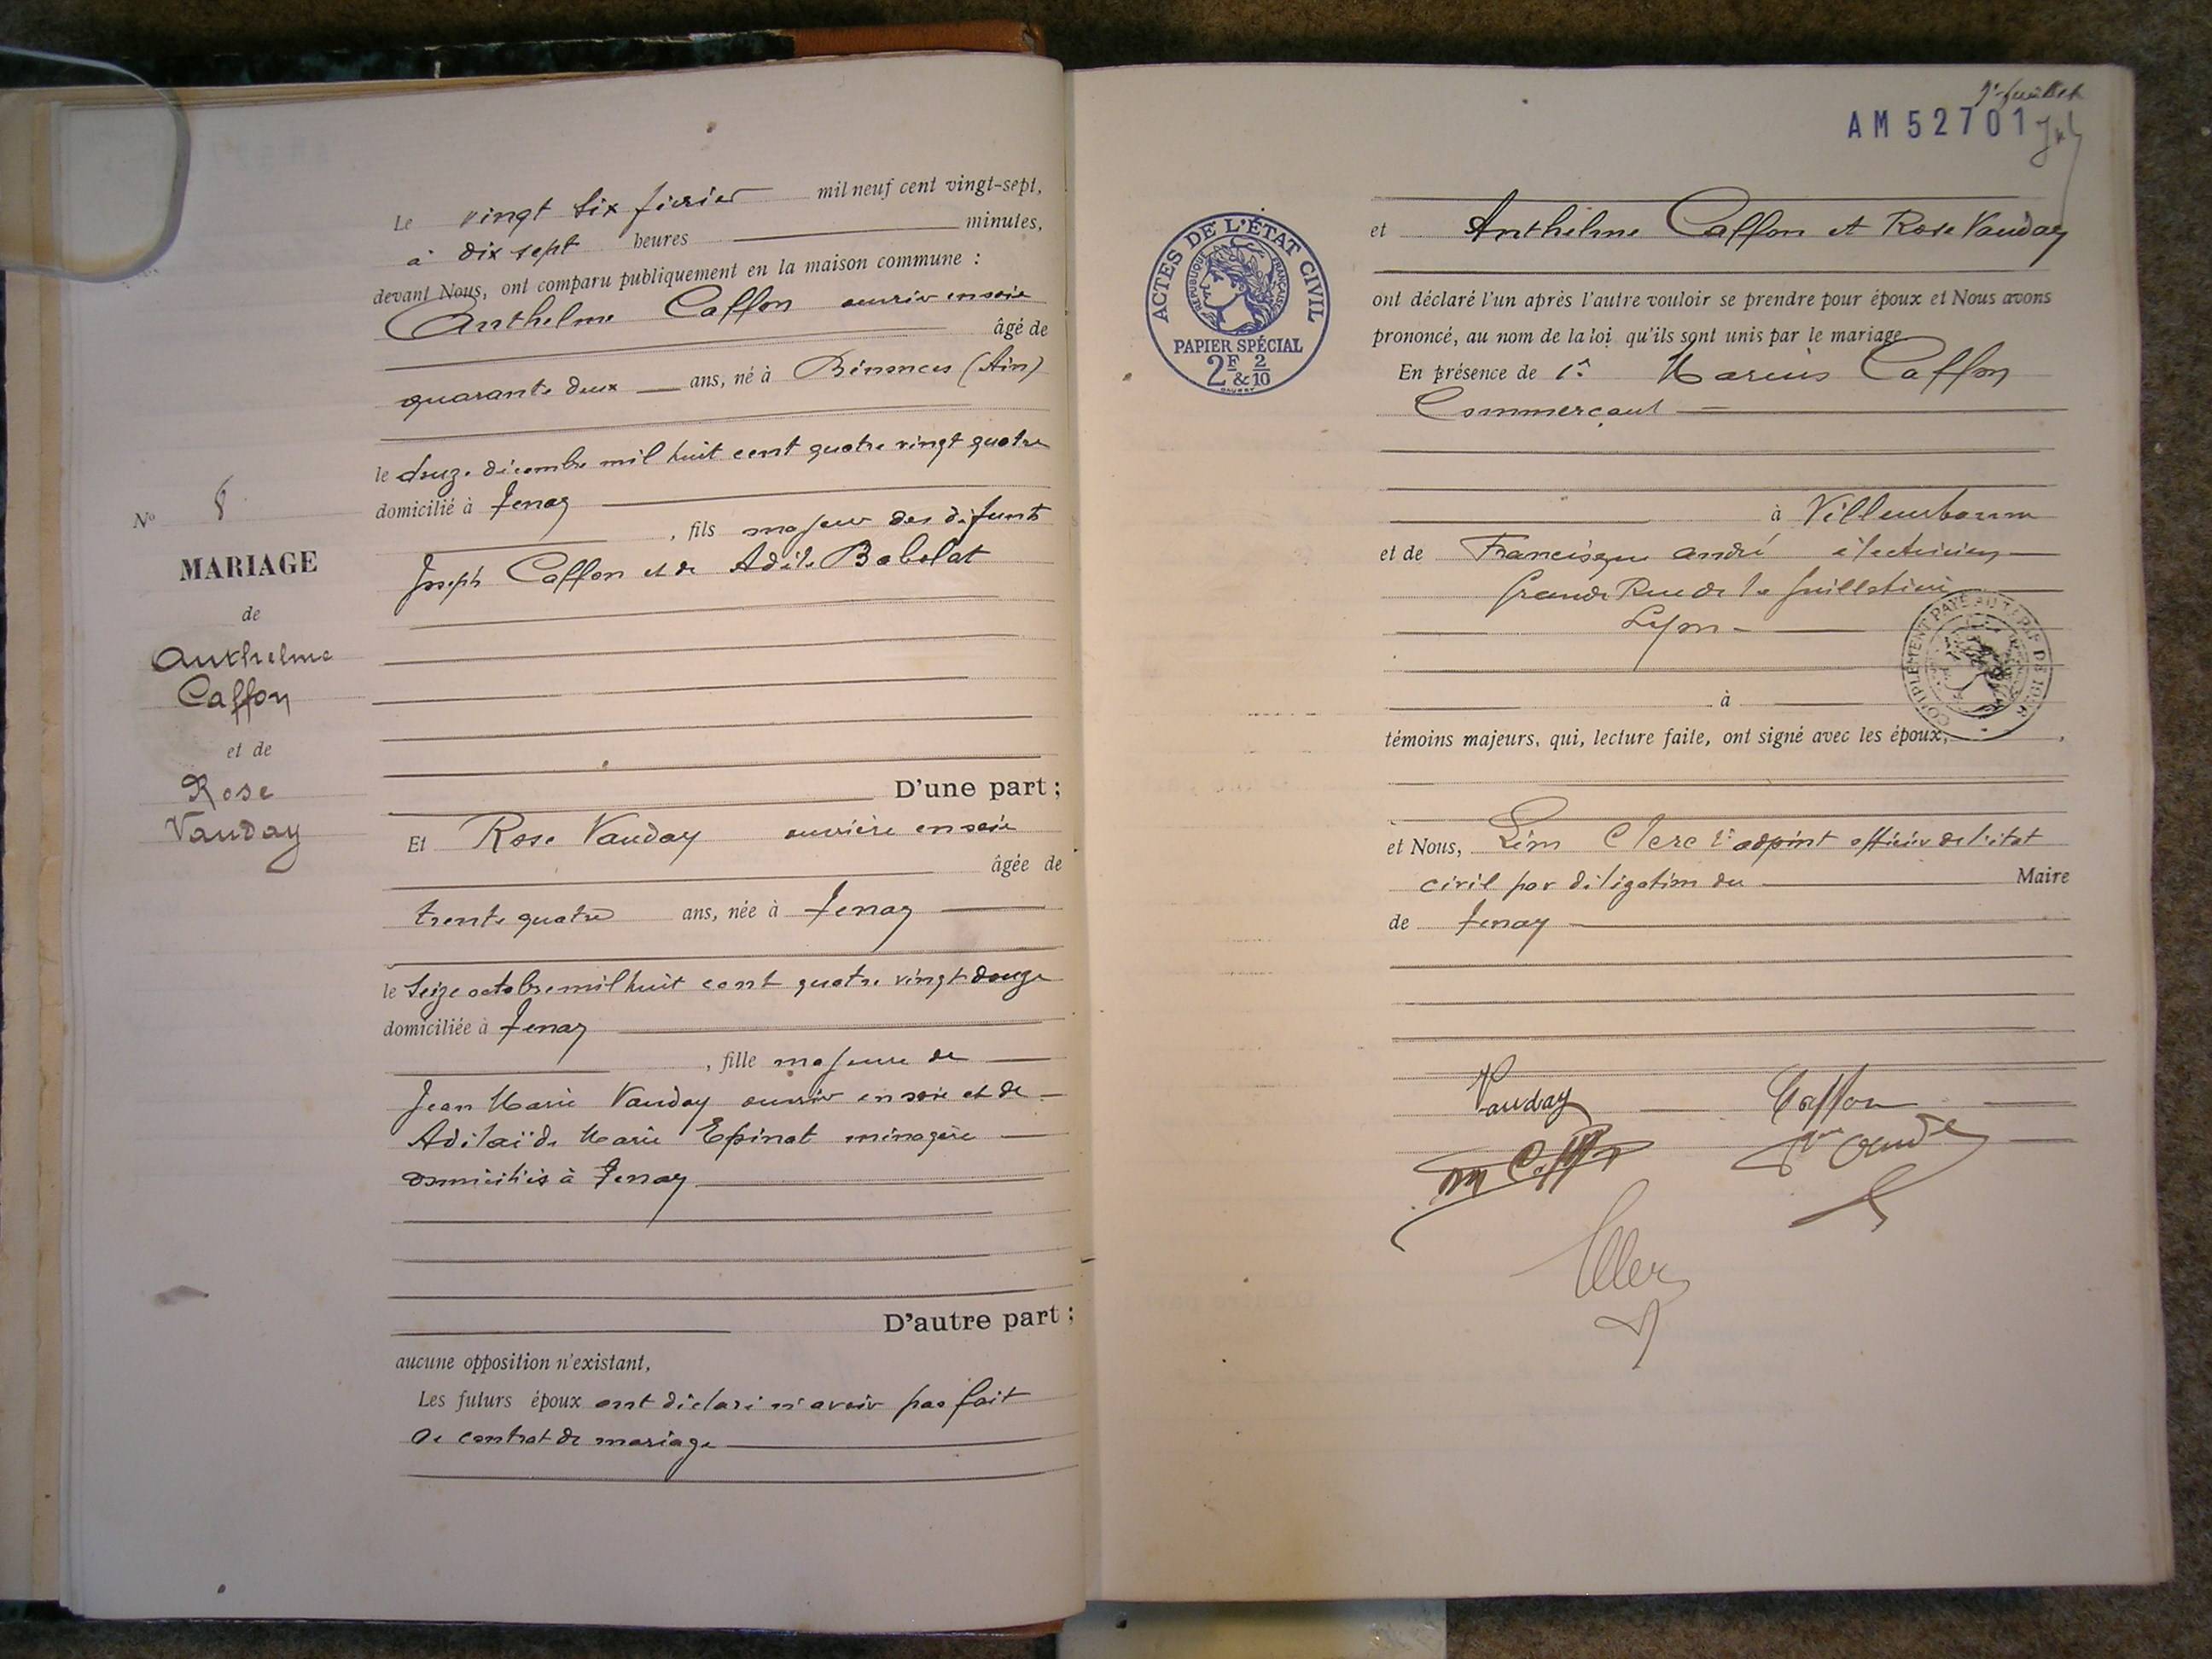 Le vingt six février mil neuf cent vingt-sept,
à dix sept heures minutes,
devant Nous, ont comparu publiquement en la maison commune :
Anthelme Caffon ouvrier en soie
âgé de
quarante deux ans, né à Bénonces (Ain)
le douze décembre mil huit cent quatre vingt quatre
domicilié à Tenay
, fils majeur des défunts
Joseph Caffon et de Adèle Babolat
D'une part ;
Et Rose Vauday ouvrière en soie
âgée de
trente quatre ans, née à Tenay
le seize octobre mil huit cent quatre vingt douze
domiciliée à Tenay
, fille majeure de
Jean Marie Vauday ouvrier en soie et de
Adélaïde Marie Epinat ménagère
domiciliés à Tenay
D'autre part ;
aucune opposition n'existant,
Les futurs époux ont déclaré n'avoir pas fait
de contrat de mariage
Nº 8
MARIAGE
de
Anthelme
Caffon
et de
Rose
Vauday
AM 52701
ACTES DE L'ÉTAT CIVIL
RÉPUBLIQUE FRANÇAISE
PAPIER SPÉCIAL
2F & 2/10
et Anthelme Caffon et Rose Vauday
ont déclaré l'un après l'autre vouloir se prendre pour époux et Nous avons
prononcé, au nom de la loi qu'ils sont unis par le mariage
En présence de 1º Marius Caffon
Commerçant
à Villeurbanne
et de Francisque André électricien
Grande Rue de la Guillotière
Lyon
à
témoins majeurs, qui, lecture faite, ont signé avec les époux,
et Nous, Léon Clerc adjoint officier de l'état
civil par délégation du Maire
de Tenay
Vauday Caffon
m Caffon